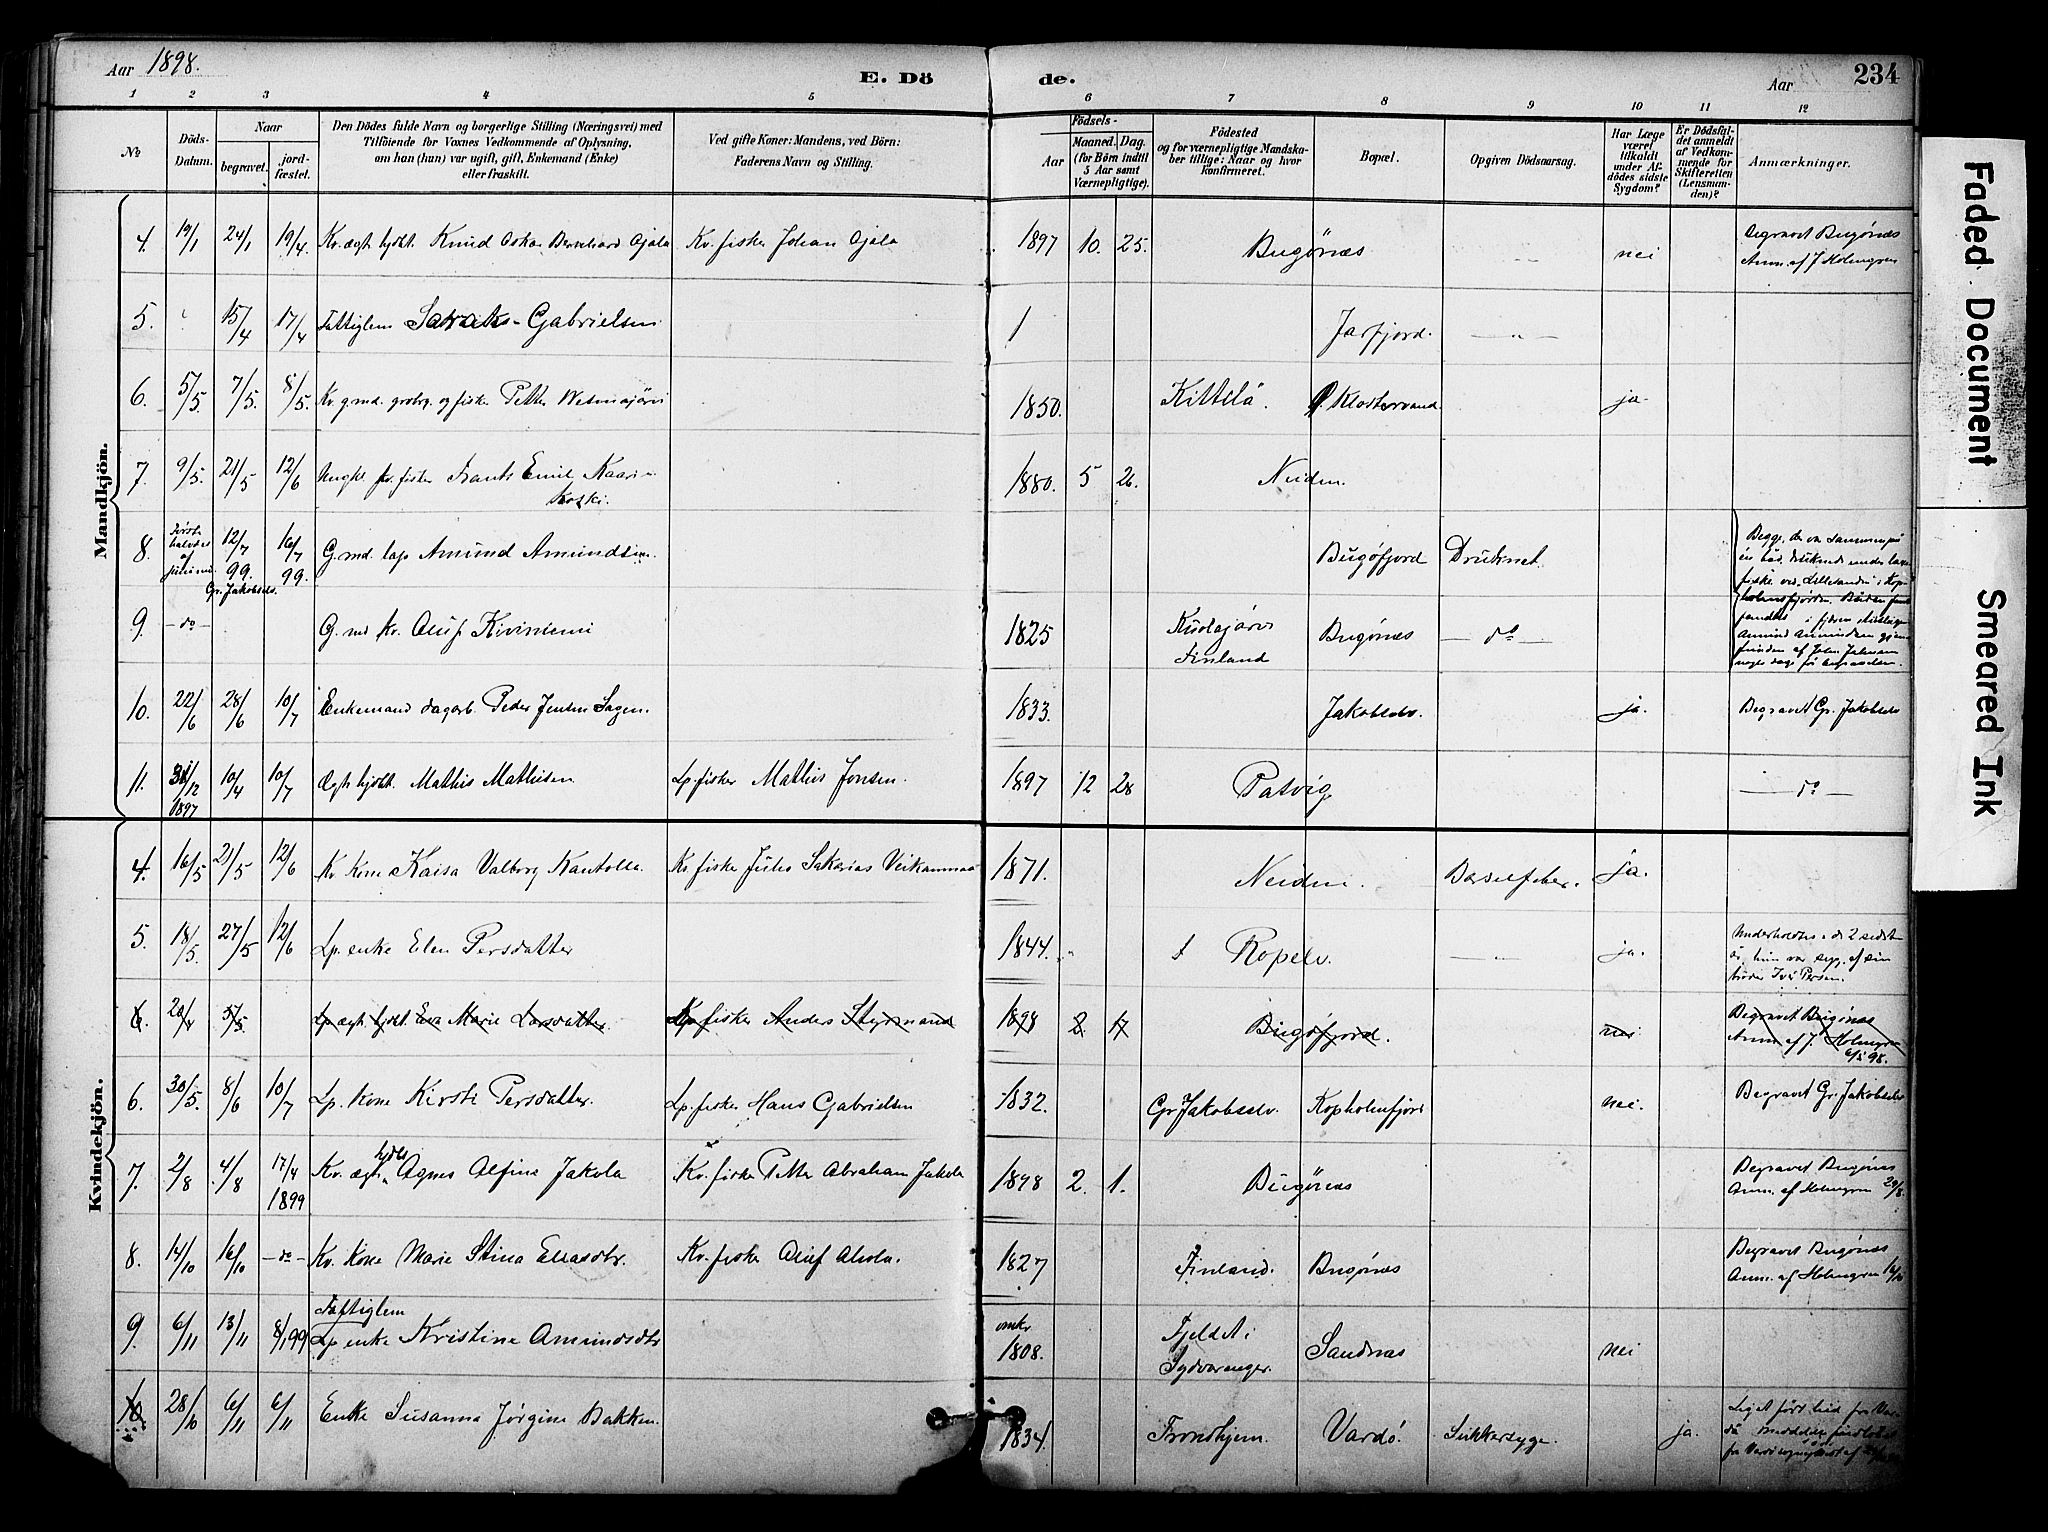 Aar 1898.
E. Dö de.
Aar
234
1 2 3 4 5 6 7 8 9 10 11 12
No
Döds-Datum.
Naar
begravet.
jord-fæstet.
Den Dödes fulde Navn og borgerlige Stilling (Næringsvei) med
Tilföiende for Voxnes Vedkommende af Oplysning,
om han (hun) var ugift, gift, Enkemand (Enke)
eller fraskilt.
Ved gifte Koner: Mandens, ved Börn:
Faderens Navn og Stilling.
Födsels-
Aar
Maaned. Dag.
(for Börn indtil
5 Aar samt
Værnepligtige).
Födested
og for værnepligtige Mandska-
ber tillige: Naar og hvor
konfirmeret.
Bopæl.
Opgiven Dödsaarsag.
Har Læge
været
tilkaldt
under Af-
dödes sidste
Sygdom?
Er Dödsfal-
det anmeldt
af Vedkom-
mende for
Skifteretten
(Lensman-
den)?
Anmærkninger.
Mandkjön.
4. 19/1 24/1 19/4 Kv. ægt. hjdt. Knud Oskar Bernhard Ojala Kv. fisker Johan Ojala 1897 10. 25. Bugønæs - " - nei Begravet Bugønæs
Anm. af J. Holmgren
5. 15/4 17/4 Fattiglem Gabrielsen 1 Jarfjord. - " -
6. 5/5. 7/5. 8/5. Kv. g.md. og fisker Petter 1850. Kittelä. Klostervand. ja.
7. 9/5. 21/5 12/6 Ungkl. kv. fisker Frants Emil Kaari-
koski. 1880. 5 26. Neiden.
8. Første halvdel af juni md. 12/7 99. Gr. Jakobselv. 16/7 99. G.md. lap Amund Amundsen. Bugøfjord Druknet. Begge, der var sammen på
én båd, druknede under laxe-
fiske ved
9. - do - G. md kv. Oluf Kiviniemi 1825 Kuolajärvi
Finland Bugønæs - do -
10. 22/6 28/6 10/7 Enkemand dagarb. Peder Jensen Sagen. 1833. Jakobselv. ja. Begravet Gr. Jakobselv
11. 31/12 1897 10/4 10/7 Ægt. hjdt. Mathis Mathisen Lp. fisker Mathis Jonsen. 1897 12 28 Patvig - do -
Kvindekjön.
4. 16/5 21/5 12/6 Kv. kone Kaisa Valborg Kantolla Kv. fisker Julius Sakarias Veikanmaa 1871. Neiden. Barselfeber. ja.
5. 18/5. 27/5 12/6 Lp. enke Elen Persdatter 1844. Ropelv. - " - ja. Underholdtes i de 2 sidste
år, hun var syg, af sin
broder Iver Persen.
6. 20/4 5/5 Lp. ægt. hjdt. Eva Marie Larsdatter. Lp. fisker Anders Styrmand 1898 2. 17 Bugøfjord. nei Begravet Bugønæs
Anm. af J. Holmgren
6/5 98.
6. 30/5. 8/6 10/7 Lp. kone Kirste Persdatter Lp. fisker Hans Gabrielsen 1832. Gr. Jakobselv. Kopholmfjord nei. Begravet Gr. Jakobselv
7. 2/8 4/8 17/4 1899 Kv. ægt. hjdt. Agnes Alfine Jakola Kv. fisker Petter Abraham Jakola 1898 2. 1. Bugønæs Begravet Bugønæs
Anm. af Holmgren 20/8.
8. 14/10 16/10 - do - Kv. kone Marie Stina Eliasdtr. Kv. fisker Oluf Ahola. 1827 Finland. Bugønæs Begravet Bugønæs
Anm. af Holmgren 16/10
9. 6/11 13/11 8/1 99 Fattiglem
Lp enke Kristine Amundsdtr omkr
1808. Fjeldet i
Sydvaranger. Sandnæs nei
10 28/10 6/11 6/11 Enke Susanna Jørgine Bakken. 1834. Trondhjem. Vardø. Sukkersyge. ja. Liget ført hid fra Var-
dø
Faded Document
Smeared Ink